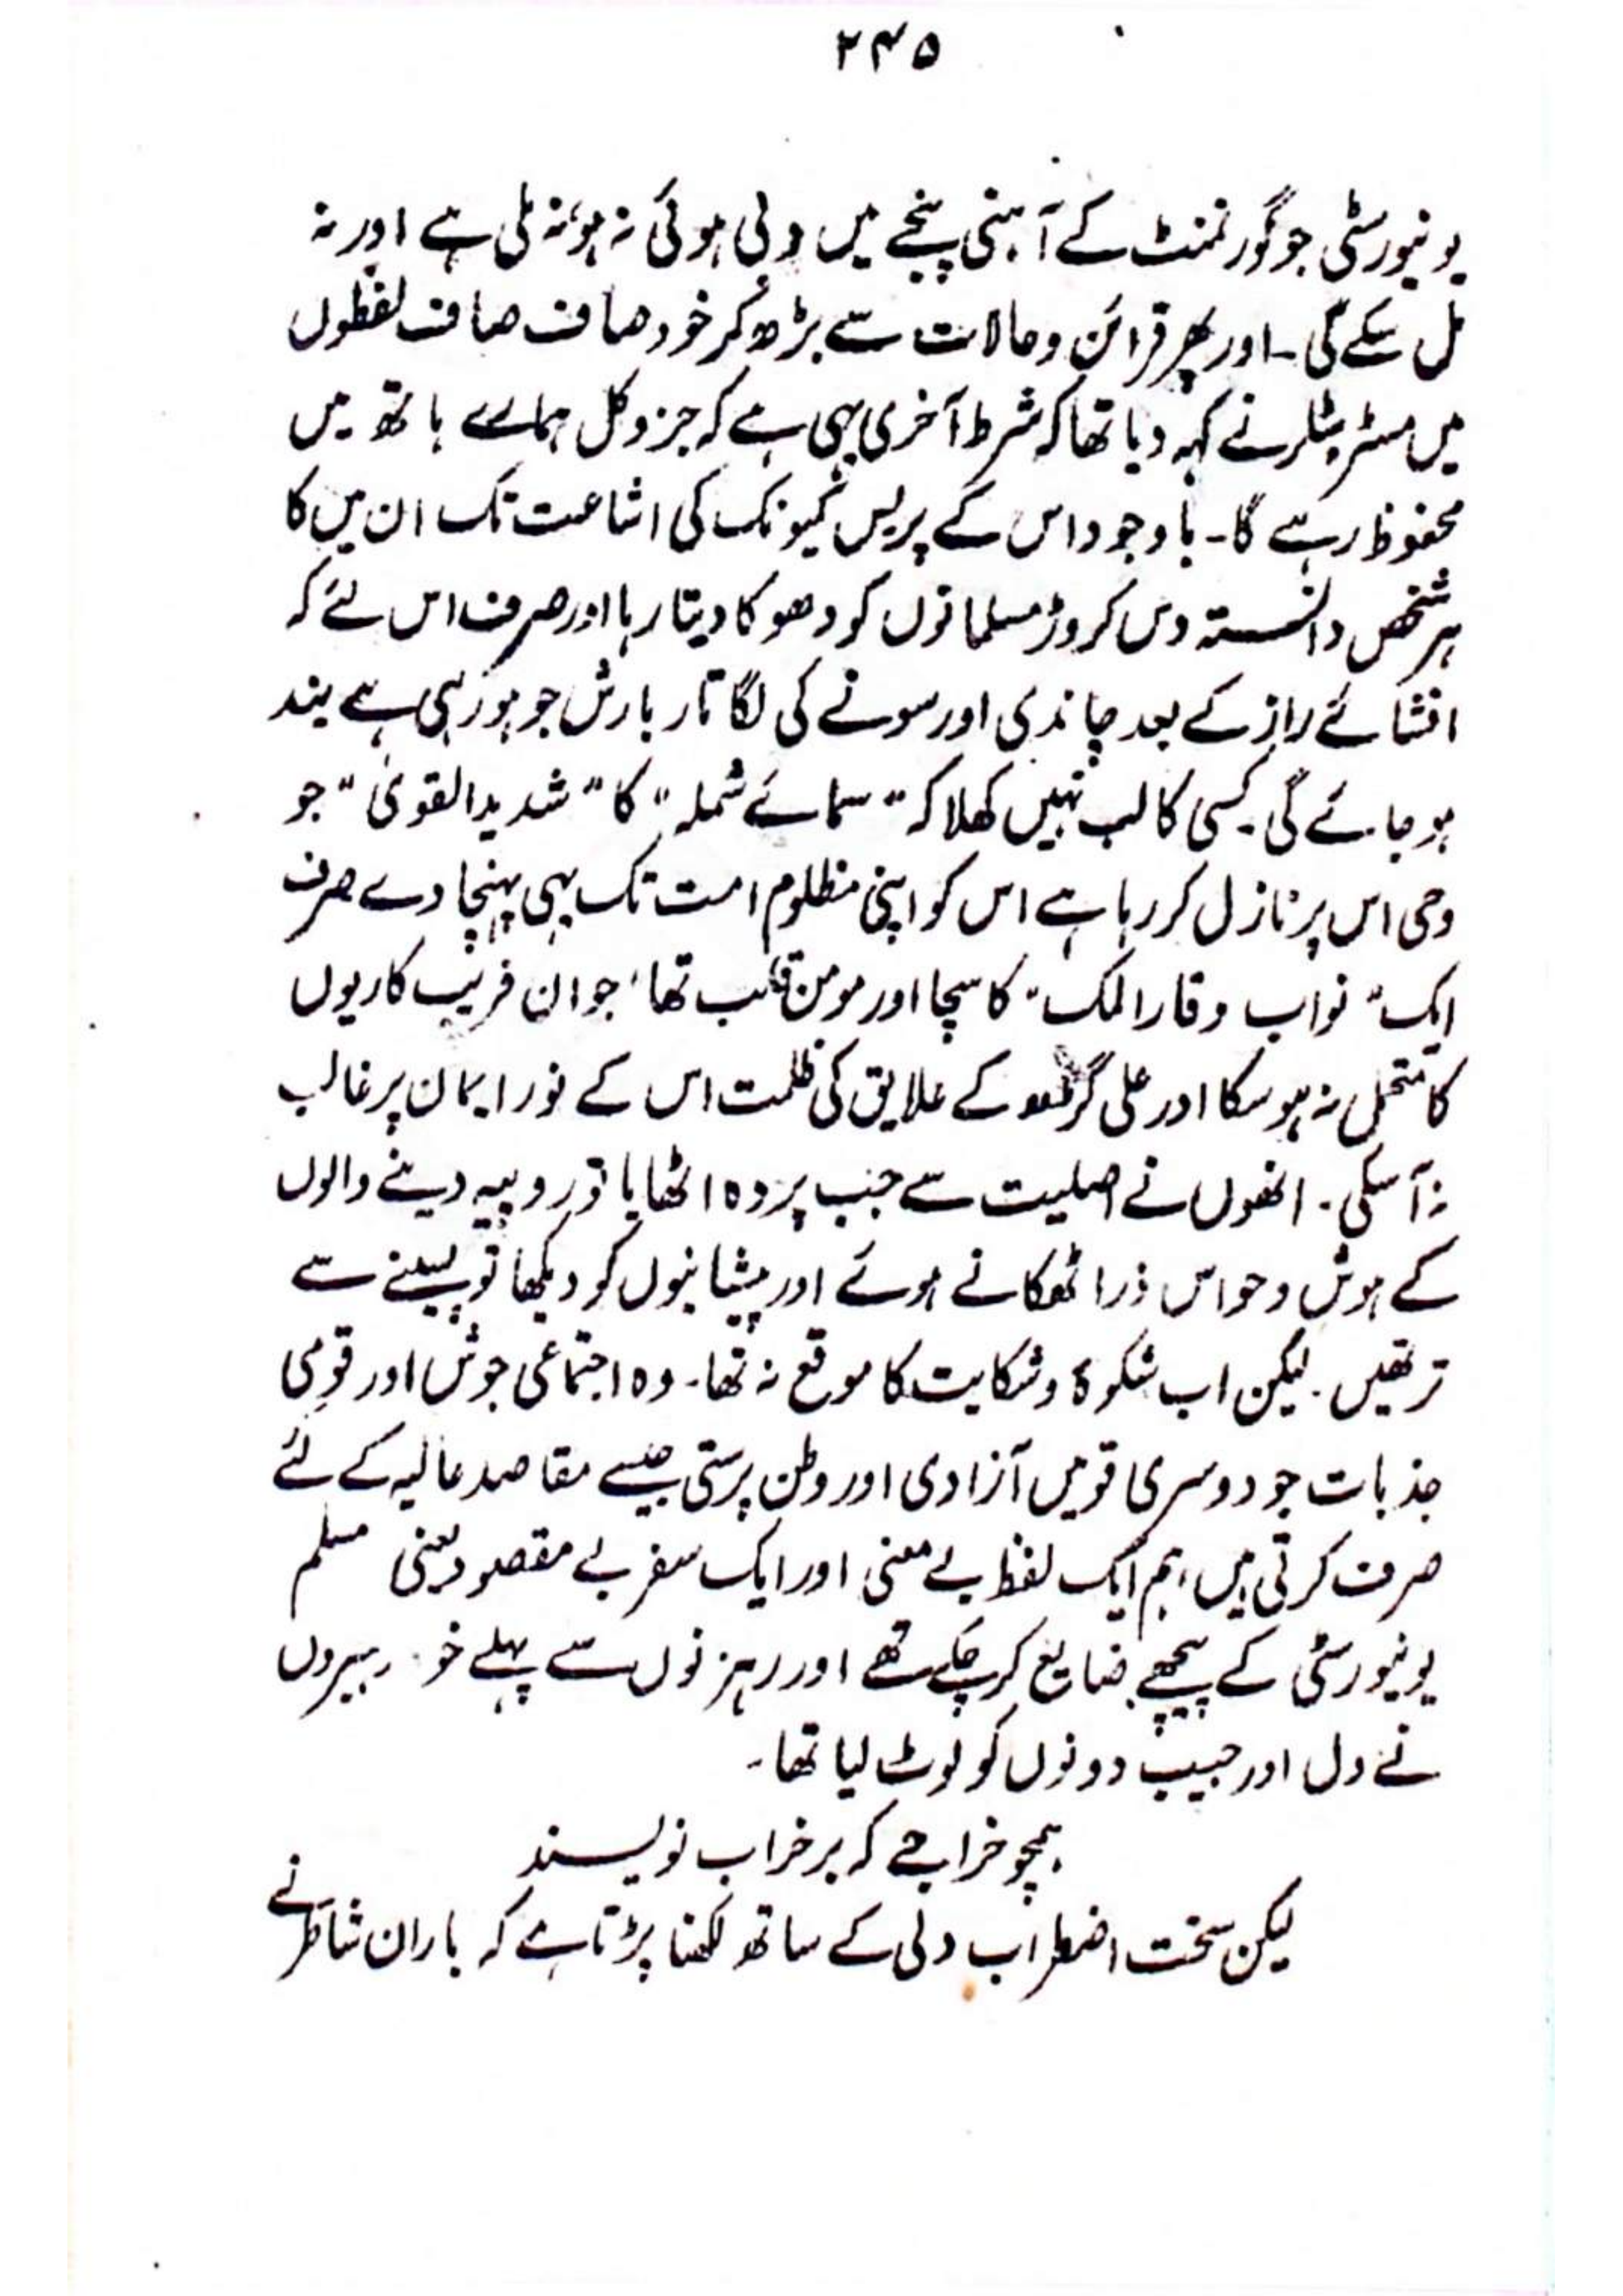 ۲۴۵
یونیورسٹی جو گورنمنٹ کے آہنی پنجے میں دبی ہوئی نہ ہو، نہ ملی ہے اور نہ
مل سکے گی۔ اور پھر قرائن و حالات سے بڑھ کر خود صاف صاف لفظوں
میں مسٹر بٹلر نے کہہ دیا تھا کہ شرط آخری یہی ہے کہ جز و کل ہمارے ہاتھ میں
محفوظ رہے گا۔ باوجود اس کے پریس کمیونک کی اشاعت تک ان میں کا
ہر شخص دانستہ دس کروڑ مسلمانوں کو دھوکا دیتا رہا اور صرف اس لئے کہ
افشائے راز کے بعد چاندی اور سونے کی لگاتار بارش جو ہو رہی ہے بند
ہو جائے گی۔ کسی کا لب نہیں کھلا کہ "سمائے شملہ" کا "شدید القویٰ" جو
وحی اس پر نازل کر رہا ہے اس کو اپنی مظلوم امت تک بھی پہنچا دے صرف
ایک "نواب وقار الملک" کا سچا اور مومن قلب تھا، جو ان فریب کاریوں
کا متحمل نہ ہو سکا اور علی گڑھ کے علایق کی ظلمت اس کے نور ایمان پر غالب
نہ آسکی۔ انھوں نے اصلیت سے جب پردہ اٹھایا تو روپیہ دینے والوں
کے ہوش و حواس ذرا ٹھکانے ہوئے اور پیشانیوں کو دیکھا تو پسینے سے
تر تھیں۔ لیکن اب شکوہ و شکایت کا موقع نہ تھا۔ وہ اجتماعی جوش اور قومی
جذبات جو دوسری قومیں آزادی اور وطن پرستی جیسے مقاصد عالیہ کے لئے
صرف کرتی ہیں، ہم ایک لفظ بے معنی اور ایک سفر بے مقصود یعنی مسلم
یونیورسٹی کے پیچھے ضایع کر چکے تھے اور رہزنوں سے پہلے خو رہبروں
نے دل اور جیب دونوں کو لوٹ لیا تھا۔
ہمچو خراجے کہ بر خراب نویسند
لیکن سخت اضطراب دلی کے ساتھ لکھنا پڑتا ہے کہ یاران شاطر نے